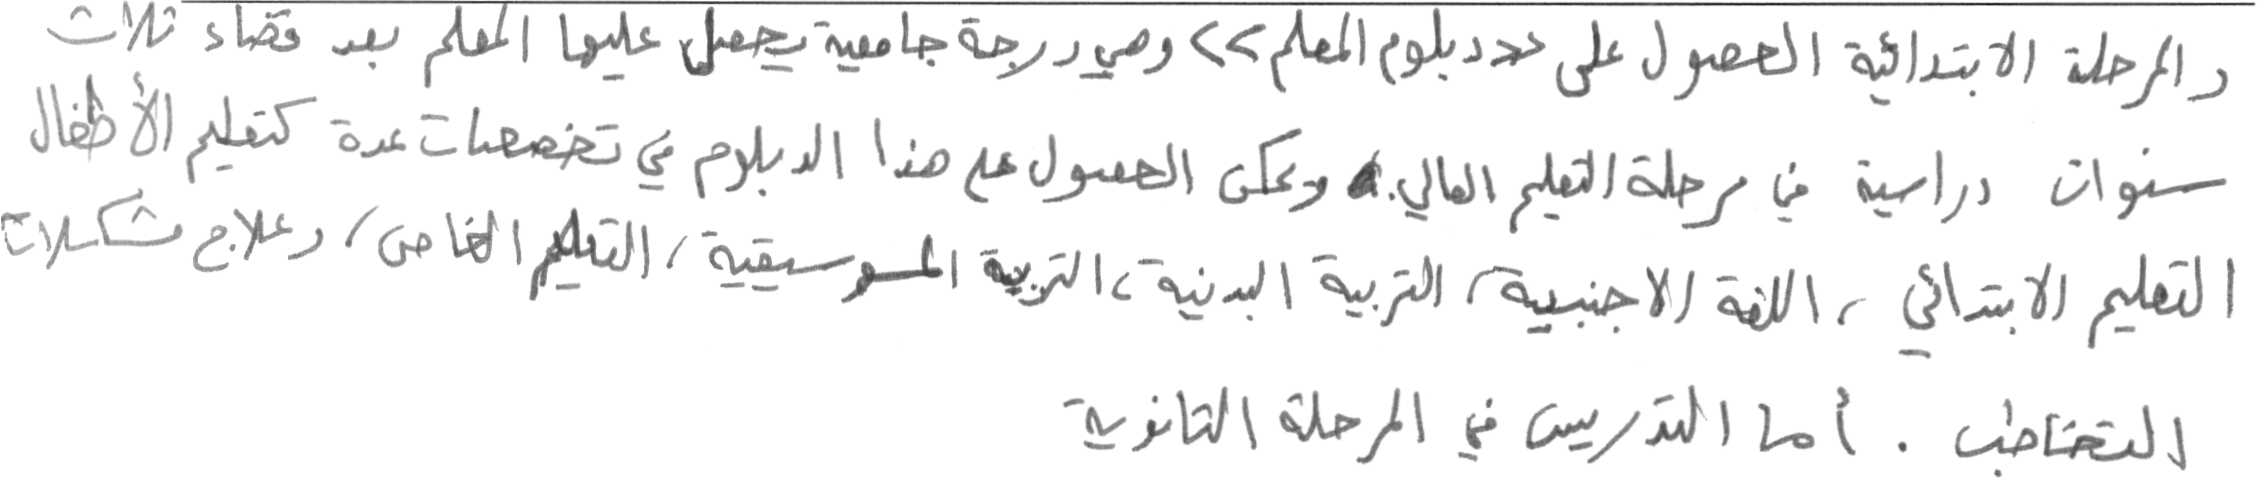 والمرحلة الابتدائية الحصول على <<دبلوم المعلم>> وهي درجة جامعية يحصل عليها المعلم بعد قضاء ثلاث
سنوات دراسية في مرحلة التعليم العالي. ويمكن الحصول على هذا الدبلوم في تخصصات عدة كتعليم الأطفال
التعليم الابتدائي، اللغة الاجنبية، التربية البدنية، التربية الموسيقية، التعليم الخاص، وعلاج مشكلات
التخاطب. أما التدريس في المرحلة الثانوية